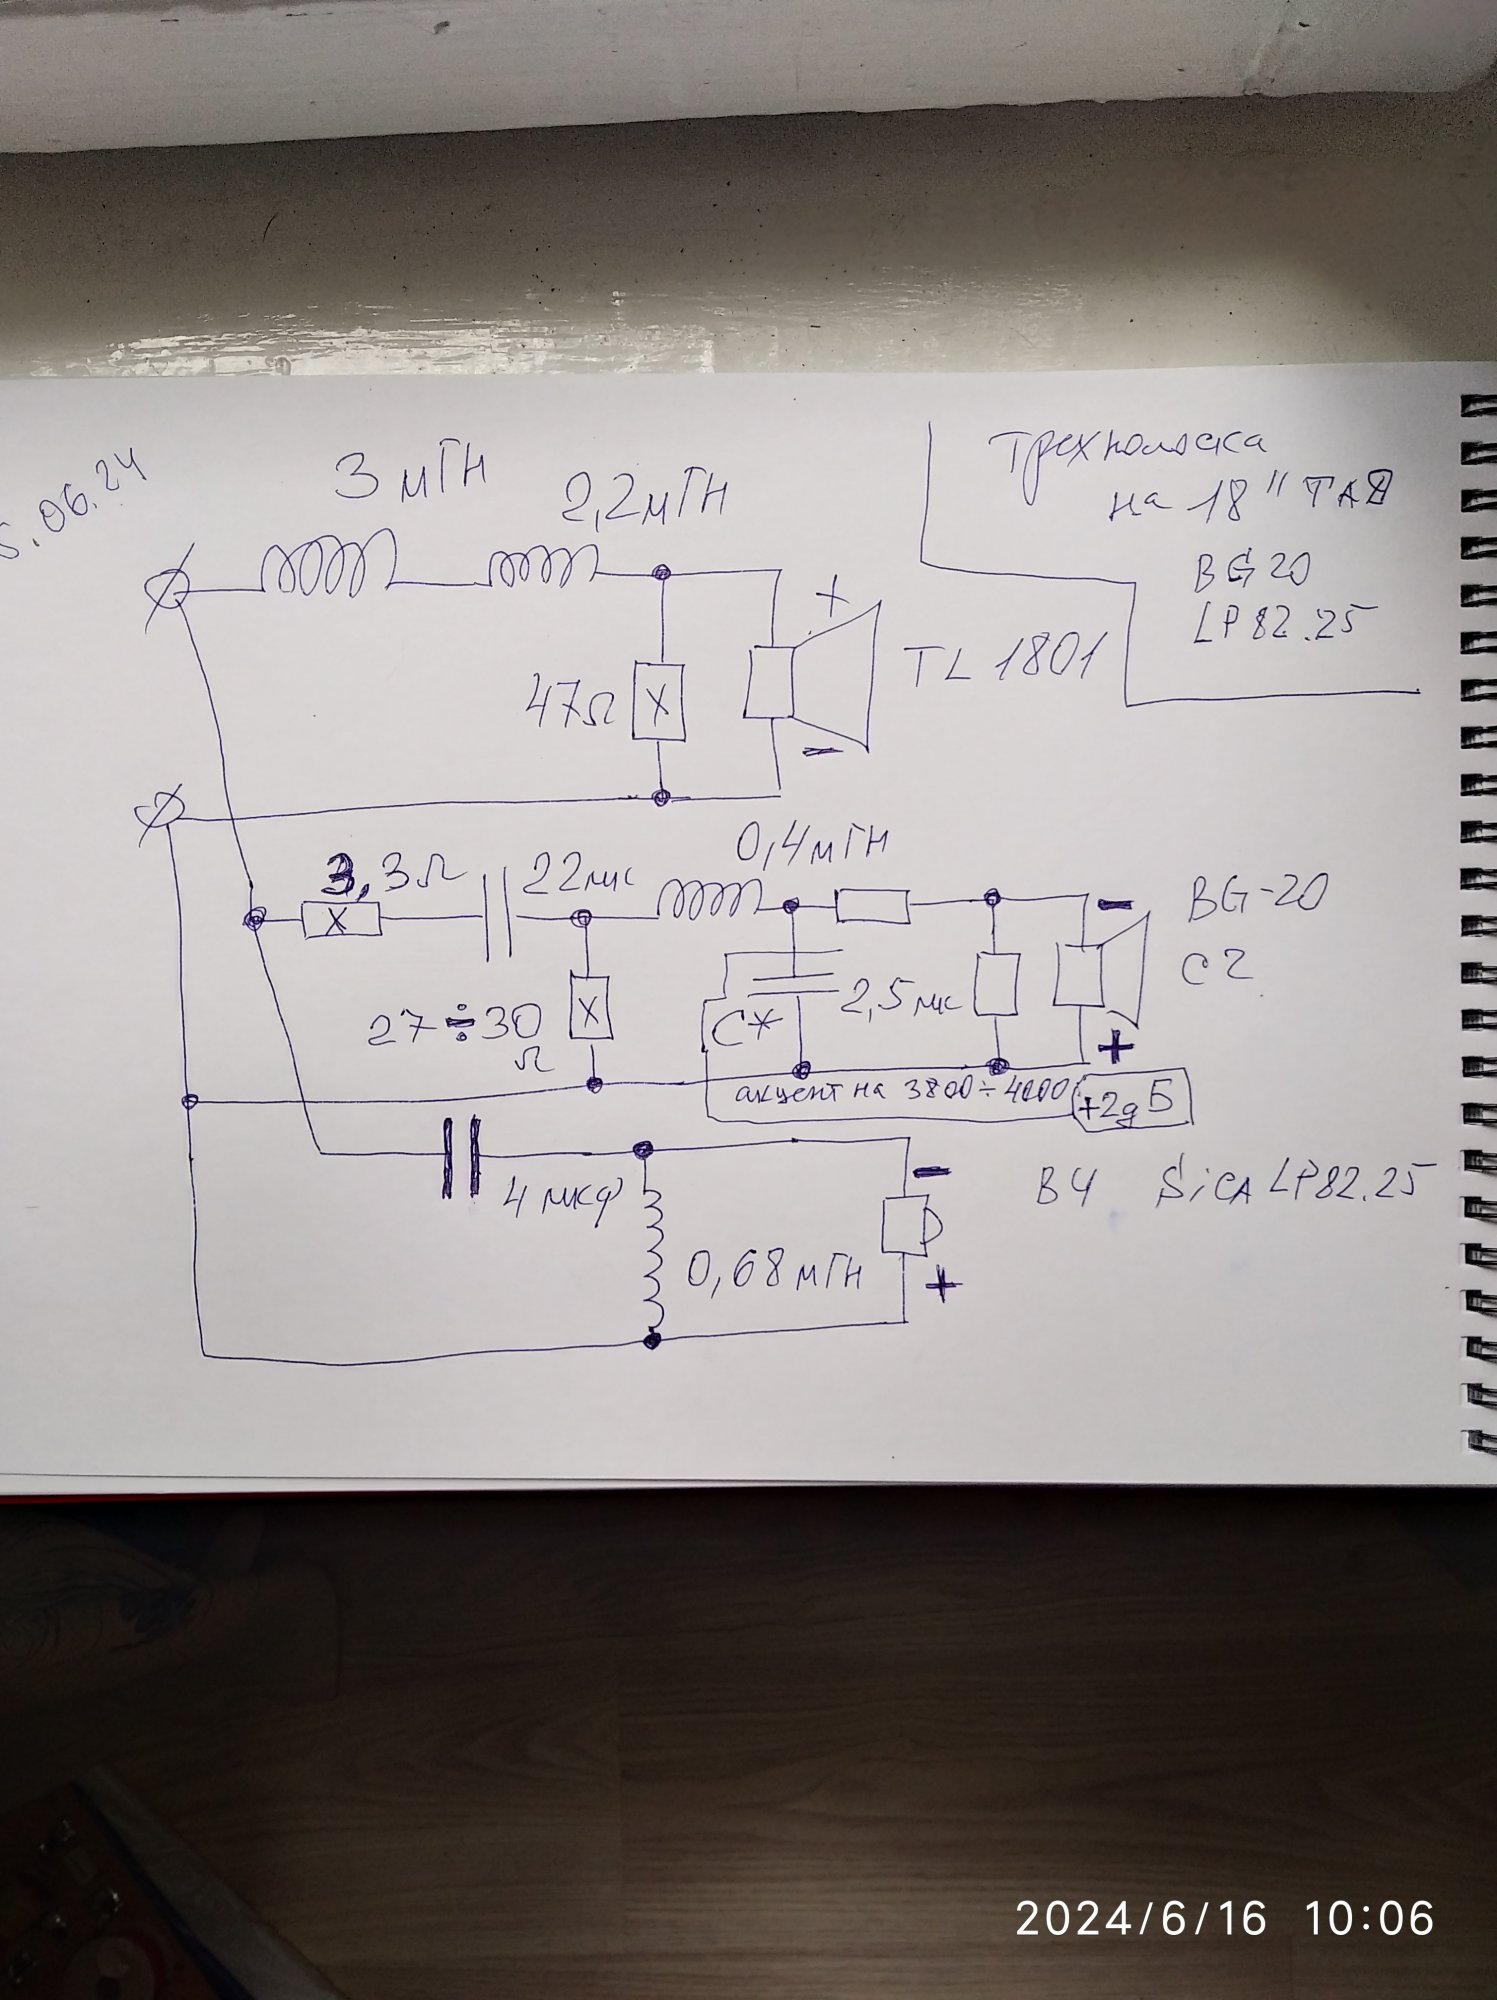 5.06.24
3 мГН
2,2мГН
трехполоска
на 18" TAD
BG20
LP82.25
+
47Ω
X
TL 1801
-
0,4мГН
3,3Ω
22мк
X
-
BG-20
СЧ
27÷30
Ω
X
С*
2,5мк
+
акцент на 3800÷4000
+2дБ
4 мкф
-
ВЧ SiCA LP82.25
0,68мГН
+
2024/6/16 10:06